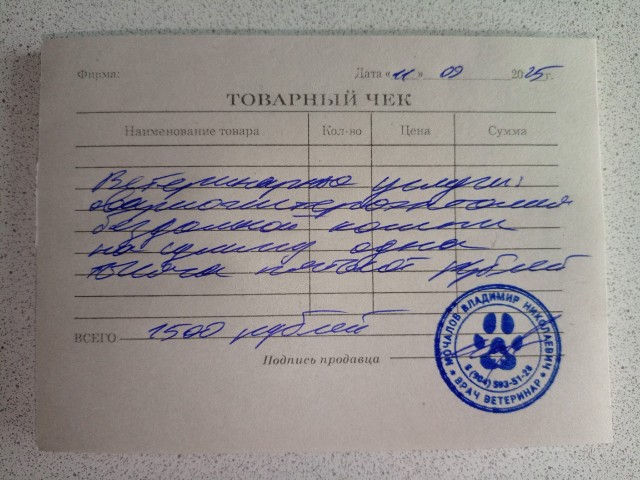 Фирма: Дата «11» 09 2025г.
ТОВАРНЫЙ ЧЕК
Наименование товара Кол-во Цена Сумма
Ветеринарные услуги:
бездомной кошки
на сумму одна
тысяча пятьсот рублей
ВСЕГО 1500 рублей
Подпись продавца
МОЧАЛОВ ВЛАДИМИР НИКОЛАЕВИЧ
8 (904) 593-51-29
ВРАЧ ВЕТЕРИНАР